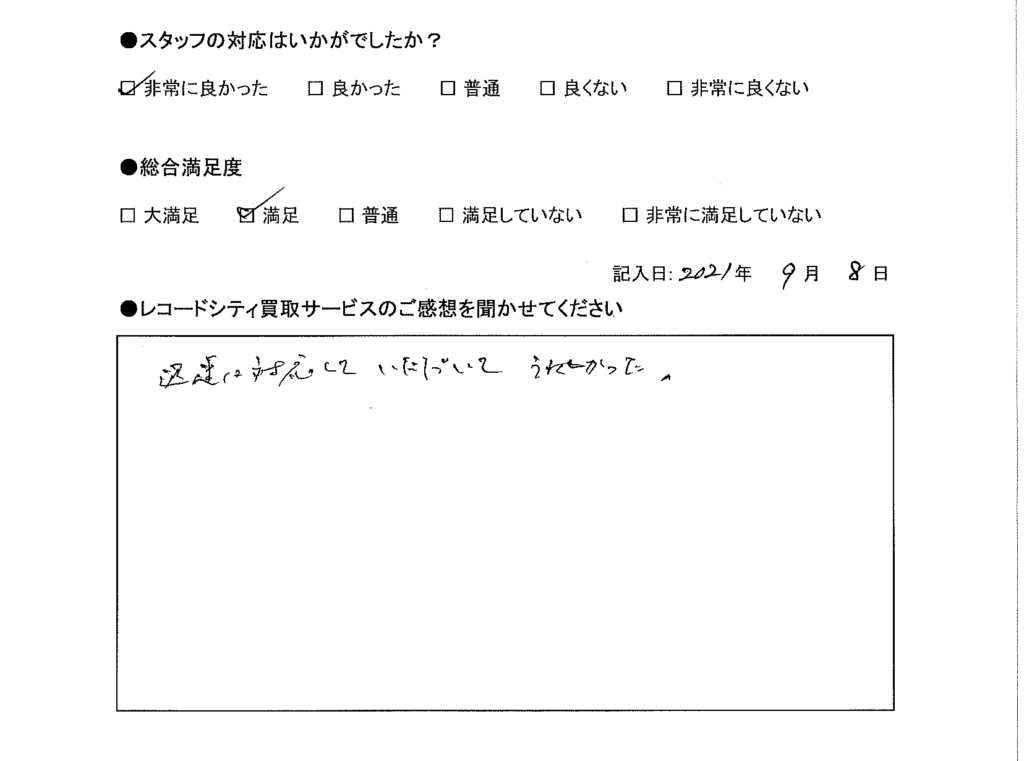 ●スタッフの対応はいかがでしたか？
☑ 非常に良かった □ 良かった □ 普通 □ 良くない □ 非常に良くない
●総合満足度
□ 大満足 ☑ 満足 □ 普通 □ 満足していない □ 非常に満足していない
記入日: 2021年 9月 8日
●レコードシティ買取サービスのご感想を聞かせてください
迅速に対応して いただいて うれしかった。